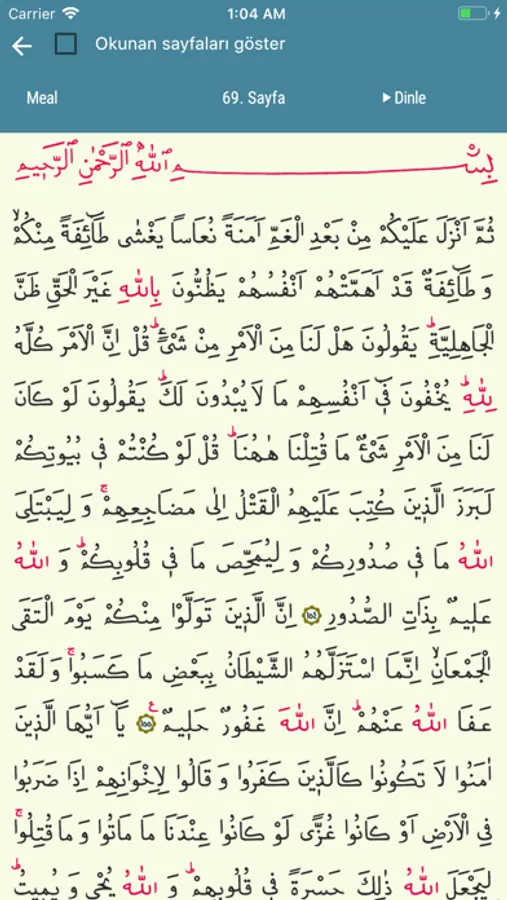 Carrier 1:04 AM
Okunan sayfaları göster
Meal 69. Sayfa Dinle
بِسْمِ اللّٰهِ الرَّحْمٰنِ الرَّحٖيمِ
ثُمَّ اَنْزَلَ عَلَيْكُمْ مِنْ بَعْدِ الْغَمِّ اَمَنَةً نُعَاساً يَغْشٰى طَٓائِفَةً مِنْكُمْۙ
وَ طَٓائِفَةٌ قَدْ اَهَمَّتْهُمْ اَنْفُسُهُمْ يَظُنُّونَ بِاللّٰهِ غَيْرَ الْحَقِّ ظَنَّ
الْجَاهِلِيَّةِؕ يَقُولُونَ هَلْ لَنَا مِنَ الْاَمْرِ مِنْ شَیْءٍؕ قُلْ اِنَّ الْاَمْرَ كُلَّهُ
لِلّٰهِؕ يُخْفُونَ فٖٓي اَنْفُسِهِمْ مَا لَا يُبْدُونَ لَكَؕ يَقُولُونَ لَوْ كَانَ
لَنَا مِنَ الْاَمْرِ شَیْءٌ مَا قُتِلْنَا هٰهُنَاؕ قُلْ لَوْ كُنْتُمْ فٖي بُيُوتِكُمْ
لَبَرَزَ الَّذٖينَ كُتِبَ عَلَيْهِمُ الْقَتْلُ اِلٰى مَضَاجِعِهِمْۚ وَ لِيَبْتَلِيَ
اللّٰهُ مَا فٖي صُدُورِكُمْ وَ لِيُمَحِّصَ مَا فٖي قُلُوبِكُمْؕ وَ اللّٰهُ
عَلٖيمٌ بِذَاتِ الصُّدُورِ ﴿١٥٤﴾ اِنَّ الَّذٖينَ تَوَلَّوْا مِنْكُمْ يَوْمَ الْتَقَى
الْجَمْعَانِۙ اِنَّمَا اسْتَزَلَّهُمُ الشَّيْطَانُ بِبَعْضِ مَا كَسَبُواۚ وَ لَقَدْ
عَفَا اللّٰهُ عَنْهُمْؕ اِنَّ اللّٰهَ غَفُورٌ حَلٖيمٌ ﴿١٥٥﴾ع يَٓا اَيُّهَا الَّذٖينَ
اٰمَنُوا لَا تَكُونُوا كَالَّذٖينَ كَفَرُوا وَ قَالُوا لِاِخْوَانِهِمْ اِذَا ضَرَبُوا
فِي الْاَرْضِ اَوْ كَانُوا غُزًّى لَوْ كَانُوا عِنْدَنَا مَا مَاتُوا وَ مَا قُتِلُواۚ
لِيَجْعَلَ اللّٰهُ ذٰلِكَ حَسْرَةً فٖي قُلُوبِهِمْؕ وَ اللّٰهُ يُحْيٖ وَ يُمٖيتُؕ